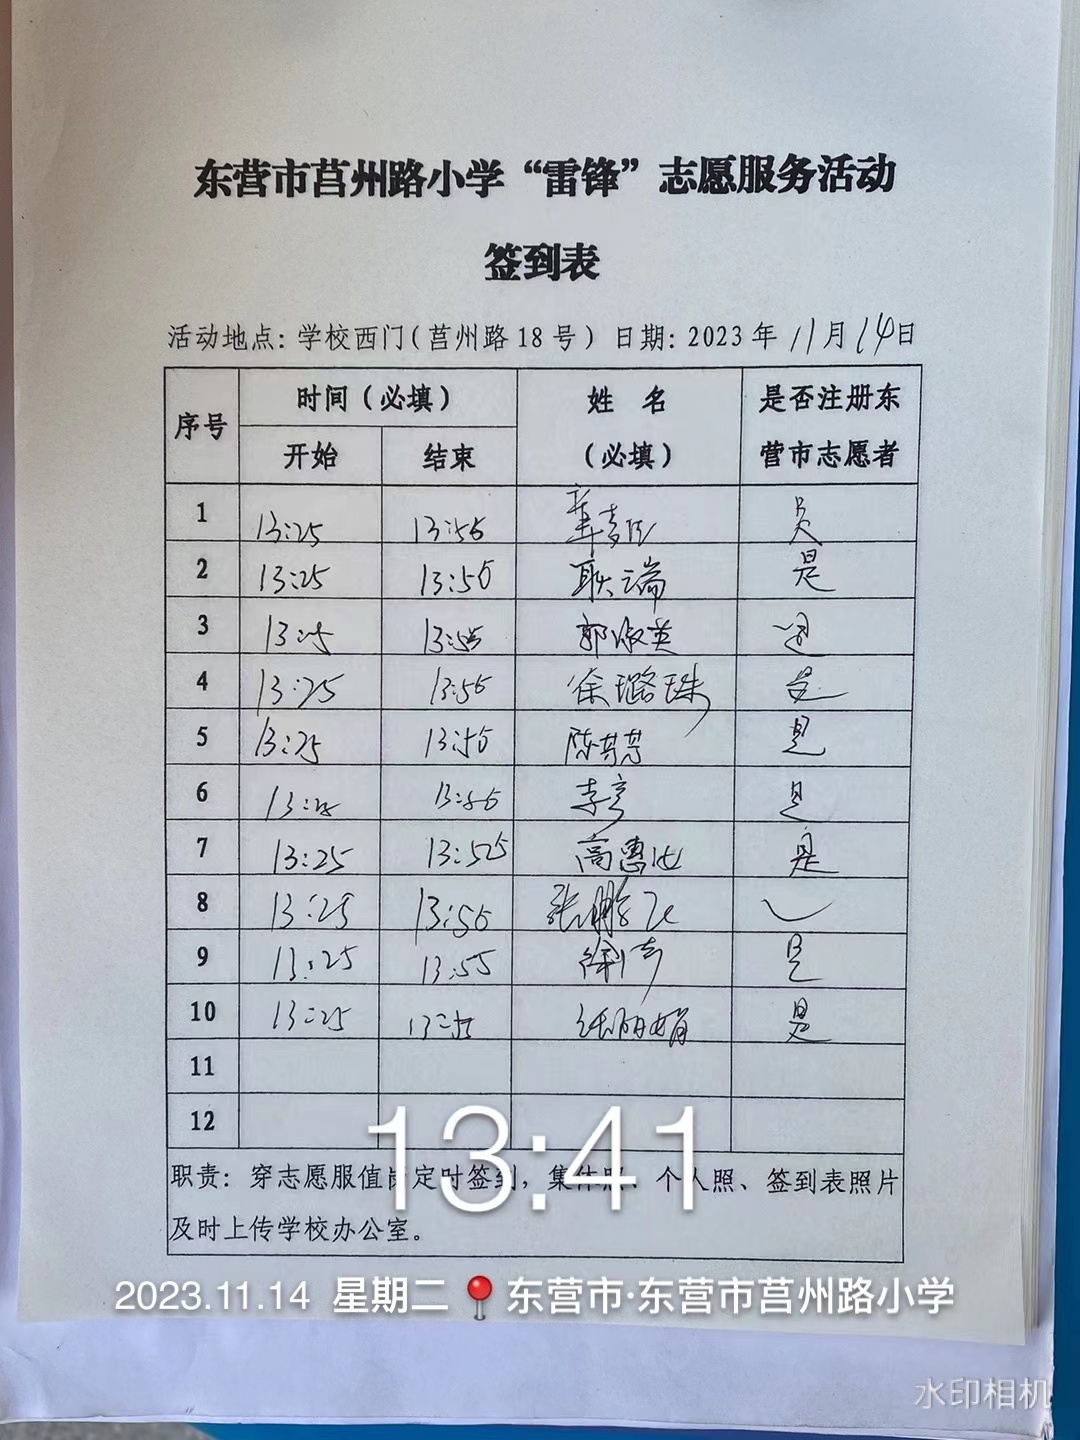 东营市莒州路小学“雷锋”志愿服务活动
签到表
活动地点：学校西门（莒州路18号）日期：2023年11月14日
序号 时间（必填） 姓 名 （必填） 是否注册东营市志愿者
开始 结束
1 13:25 13:55
2 13:25 13:55 耿云端 是
3 13:25 13:55 郭淑英 是
4 13:25 13:55 徐璐珠 是
5 13:25 13:55 陈芳芳 是
6 13:25 13:55 李亭 是
7 13:25 13:55 高惠 是
8 13:25 13:55 张鹏飞
9 13:25 13:55 徐倩 是
10 13:25 13:55 张丽娟 是
11
12
13:41
职责：穿志愿服值岗定时签到，集体照、个人照、签到表照片
及时上传学校办公室。
2023.11.14 星期二 东营市·东营市莒州路小学
水印相机